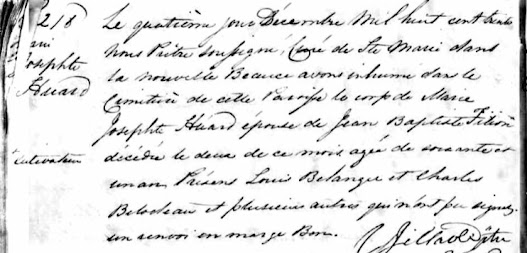 218
Josephte
Huard
Le quatrième jour Décembre Mil huit cent trente
Nous Prêtre soussigné, Curé de Ste Marie dans
la nouvelle Beauce avons inhumé dans le
Cimetière de cette Paroisse le corps de Marie
Josephte Huard épouse de Jean Baptiste
cultivateur
décédée le deux de ce mois agée de soixante et
un an Présens Louis Belanger et Charles
et plusieurs autres qui n'ont pu signer
un renvoi en marge Bon.
Ptre